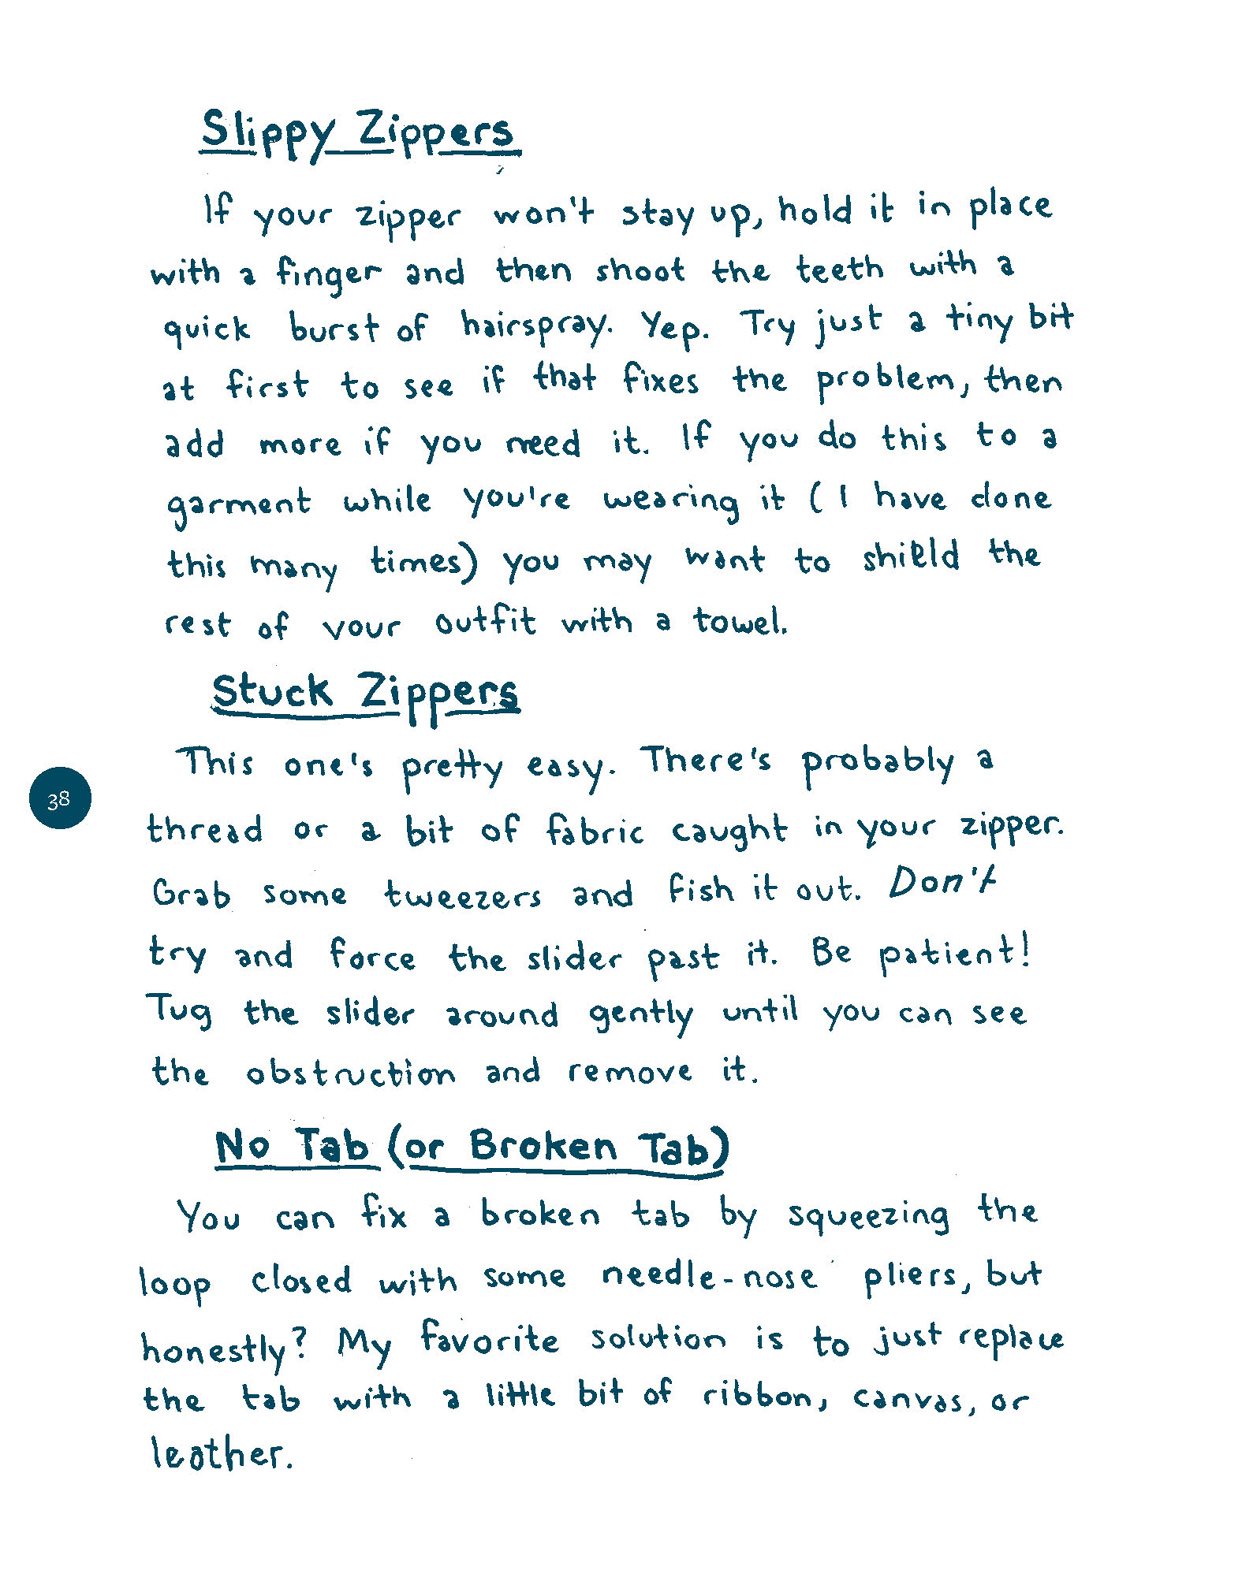 Slippy Zippers
If your zipper won't stay up, hold it in place
with a finger and then shoot the teeth with a
quick burst of hairspray. Yep. Try just a tiny bit
at first to see if that fixes the problem, then
add more if you need it. If you do this to a
garment while you're wearing it (I have done
this many times) you may want to shield the
rest of your outfit with a towel.
Stuck Zippers
This one's pretty easy. There's probably a
38
thread or a bit of fabric caught in your zipper.
Grab some tweezers and fish it out. Don't
try and force the slider past it. Be patient!
Tug the slider around gently until you can see
the obstruction and remove it.
No Tab (or Broken Tab)
You can fix a broken tab by squeezing the
loop closed with some needle-nose pliers, but
honestly? My favorite solution is to just replace
the tab with a little bit of ribbon, canvas, or
leather.